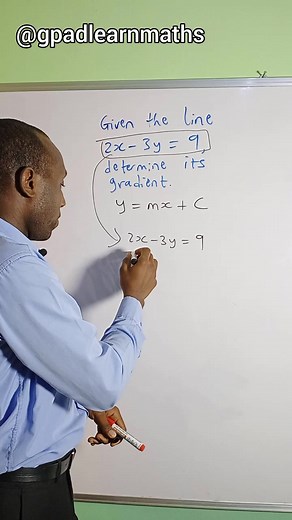 @gpadlearnmaths
Given the line
2x - 3y = 9,
determine its
gradient.
y = mx + c
2x - 3y = 9